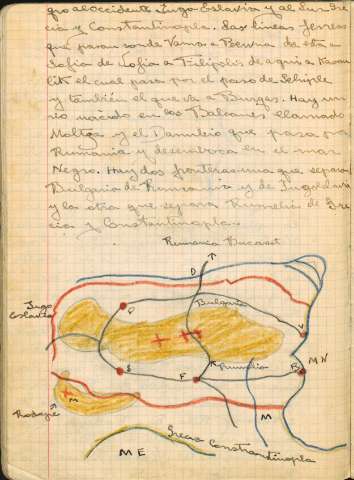 gro al occidente Jugo-Eslavia y al Sur Gre
cia y Constantinopla. Las lineas ferreas
que pasan son de Varna a de esta a
Sofia de Sofia a Filipolis de aqui a
lik el cual pasa por el paso de
y también el que va a Burgas. Hay un
rio nacido en los Balcanes llamado
y el Danubio que pasa por
Rumania y desemboca en el mar
Negro. Hay dos fronteras una que separa
Bulgaria de Rumania y de Jugoslavia
y la otra que separa Rumelia de Gre
cia y Constantinopla.
Rumania Bucarest
D
Jugo
Eslavia
P
Bulgaria
V
M N
Rumelia
S
F
B
M
M
Rodope
Grecia Constantinopla
M E